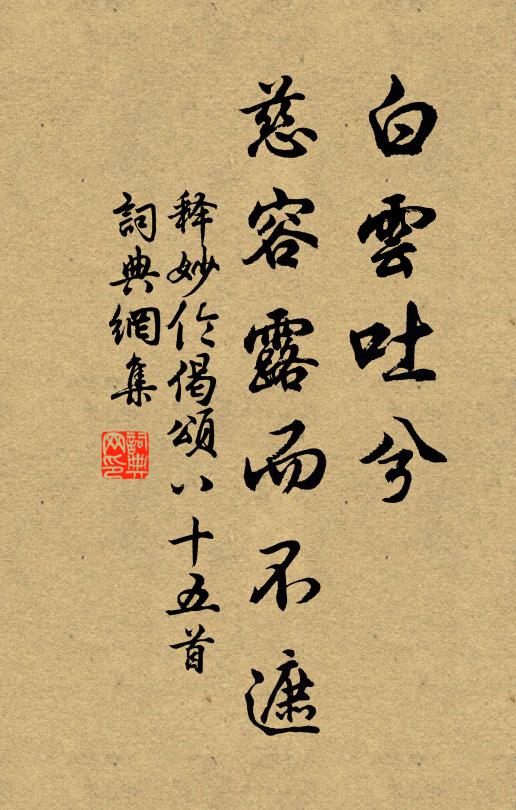 白雲吐兮
慈容露而不遮
释妙伦偈頌八十五首
詞典網集
詞典網印